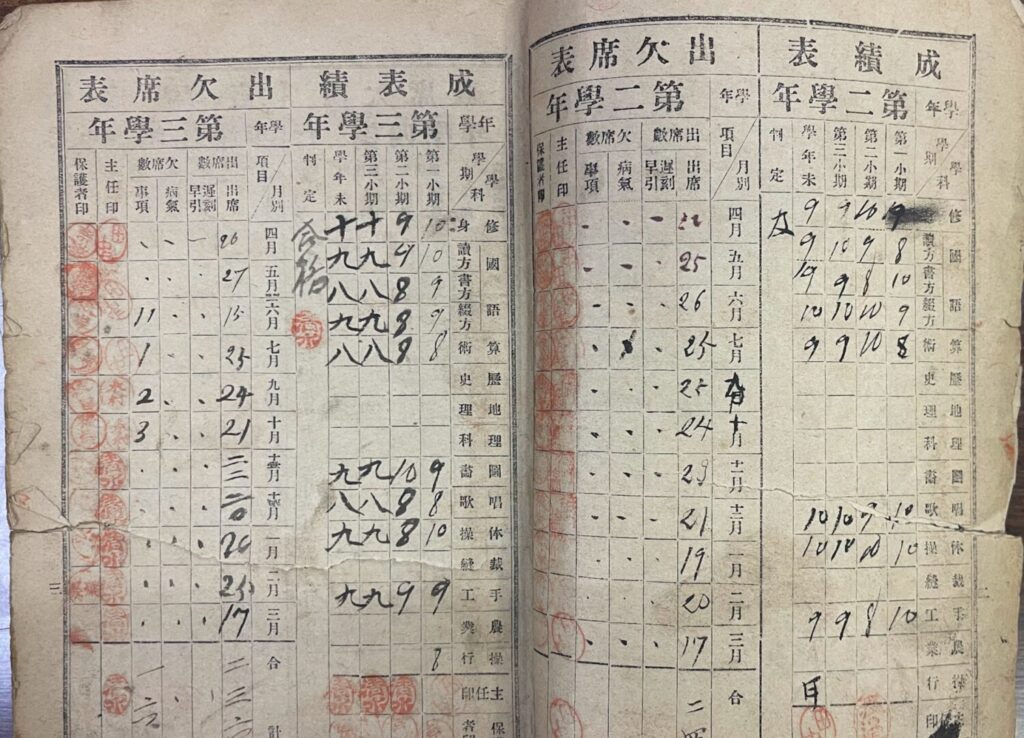 成績表
學年 第二學年
學科 學期 第一小期 第二小期 第三小期 學年末 判定
修身 9 10 9 9
國語 讀方 8 9 10 9
書方 10 8 9
綴方 9 10 10 10
算術 8 10 9 9
歷史
地理
理科
圖畵
唱歌 10 9 10 10
体操 10 10 10 10
裁縫
手工 10 8 9 9
農業
操行
出欠席表
學年 第二學年
月別 項目 出席數 出席 遲刻早引 欠席數 病氣 事項 主任印 保護者印
四月
五月 25
六月 26
七月 25
九月 25
十月 24
十一月 23
十二月 21
一月 19
二月 20
三月 17
合
二
成績表
學年 第三學年
學科 學期 第一小期 第二小期 第三小期 學年末 判定
修身 10 9 十 十 合格
國語 讀方 10 9 九 九
書方 9 8 八 八
綴方 9 8 九 九
算術 8 8 八 八
歷史
地理
理科
圖畵 9 10 九 九
唱歌 8 8 八 八
体操 10 8 九 九
裁縫
手工 9 9 九 九
農業
操行 8
主任印
保
出欠席表
學年 第三學年
月別 項目 出席數 出席 遲刻早引 欠席數 病氣 事項 主任印 保護者印
四月 26
五月 27
六月 15 11
七月 25 1
九月 24 2
十月 21 3
十一月 二三
十二月 二〇
一月 20
二月 25
三月 17
合計 二三六 一六
三